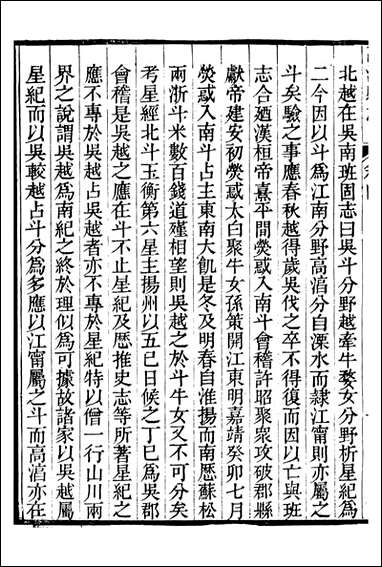 北越在吳南班固志曰吳斗分野越牽牛婺女分野析星紀爲
二今因以斗爲江南分野高湻分自溧水而隸江甯則亦屬之
斗矣驗之事應春秋越得歲吳伐之卒不得復而因以亡與班
志合廼漢桓帝熹平間熒惑入南斗會稽許昭聚衆攻破郡縣
獻帝建安初熒惑太白聚牛女孫策開江東明嘉靖癸卯七月
熒惑入南斗主東南大飢是冬及明春自淮揚而南歷蘇松
兩浙斗米數百錢道殣相望則吳越之於斗牛女又不可分矣
考星經北斗玉衡第六星主揚州以五巳日候之丁巳爲吳郡
會稽是吳越之應在斗不止星紀及歷推史志等所著星紀之
應不專於吳越占吳越者亦不專於星紀特以僧一行山川兩
界之說謂吳越爲南紀之終於理似爲可據故諸家以吳越屬
星紀而以吳較越占斗分爲多應以江甯屬之斗而高湻亦在